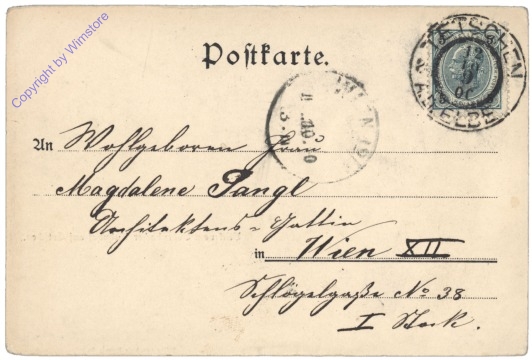 Copyright by Wimstore
Postkarte.
TETSCHEN
A.D. ELBE
WIEN
An Wohlgeboren Frau
Magdalene Pangl
Architektens-Gattin
in Wien XII
Schlögelgaße No 38
I Stock.